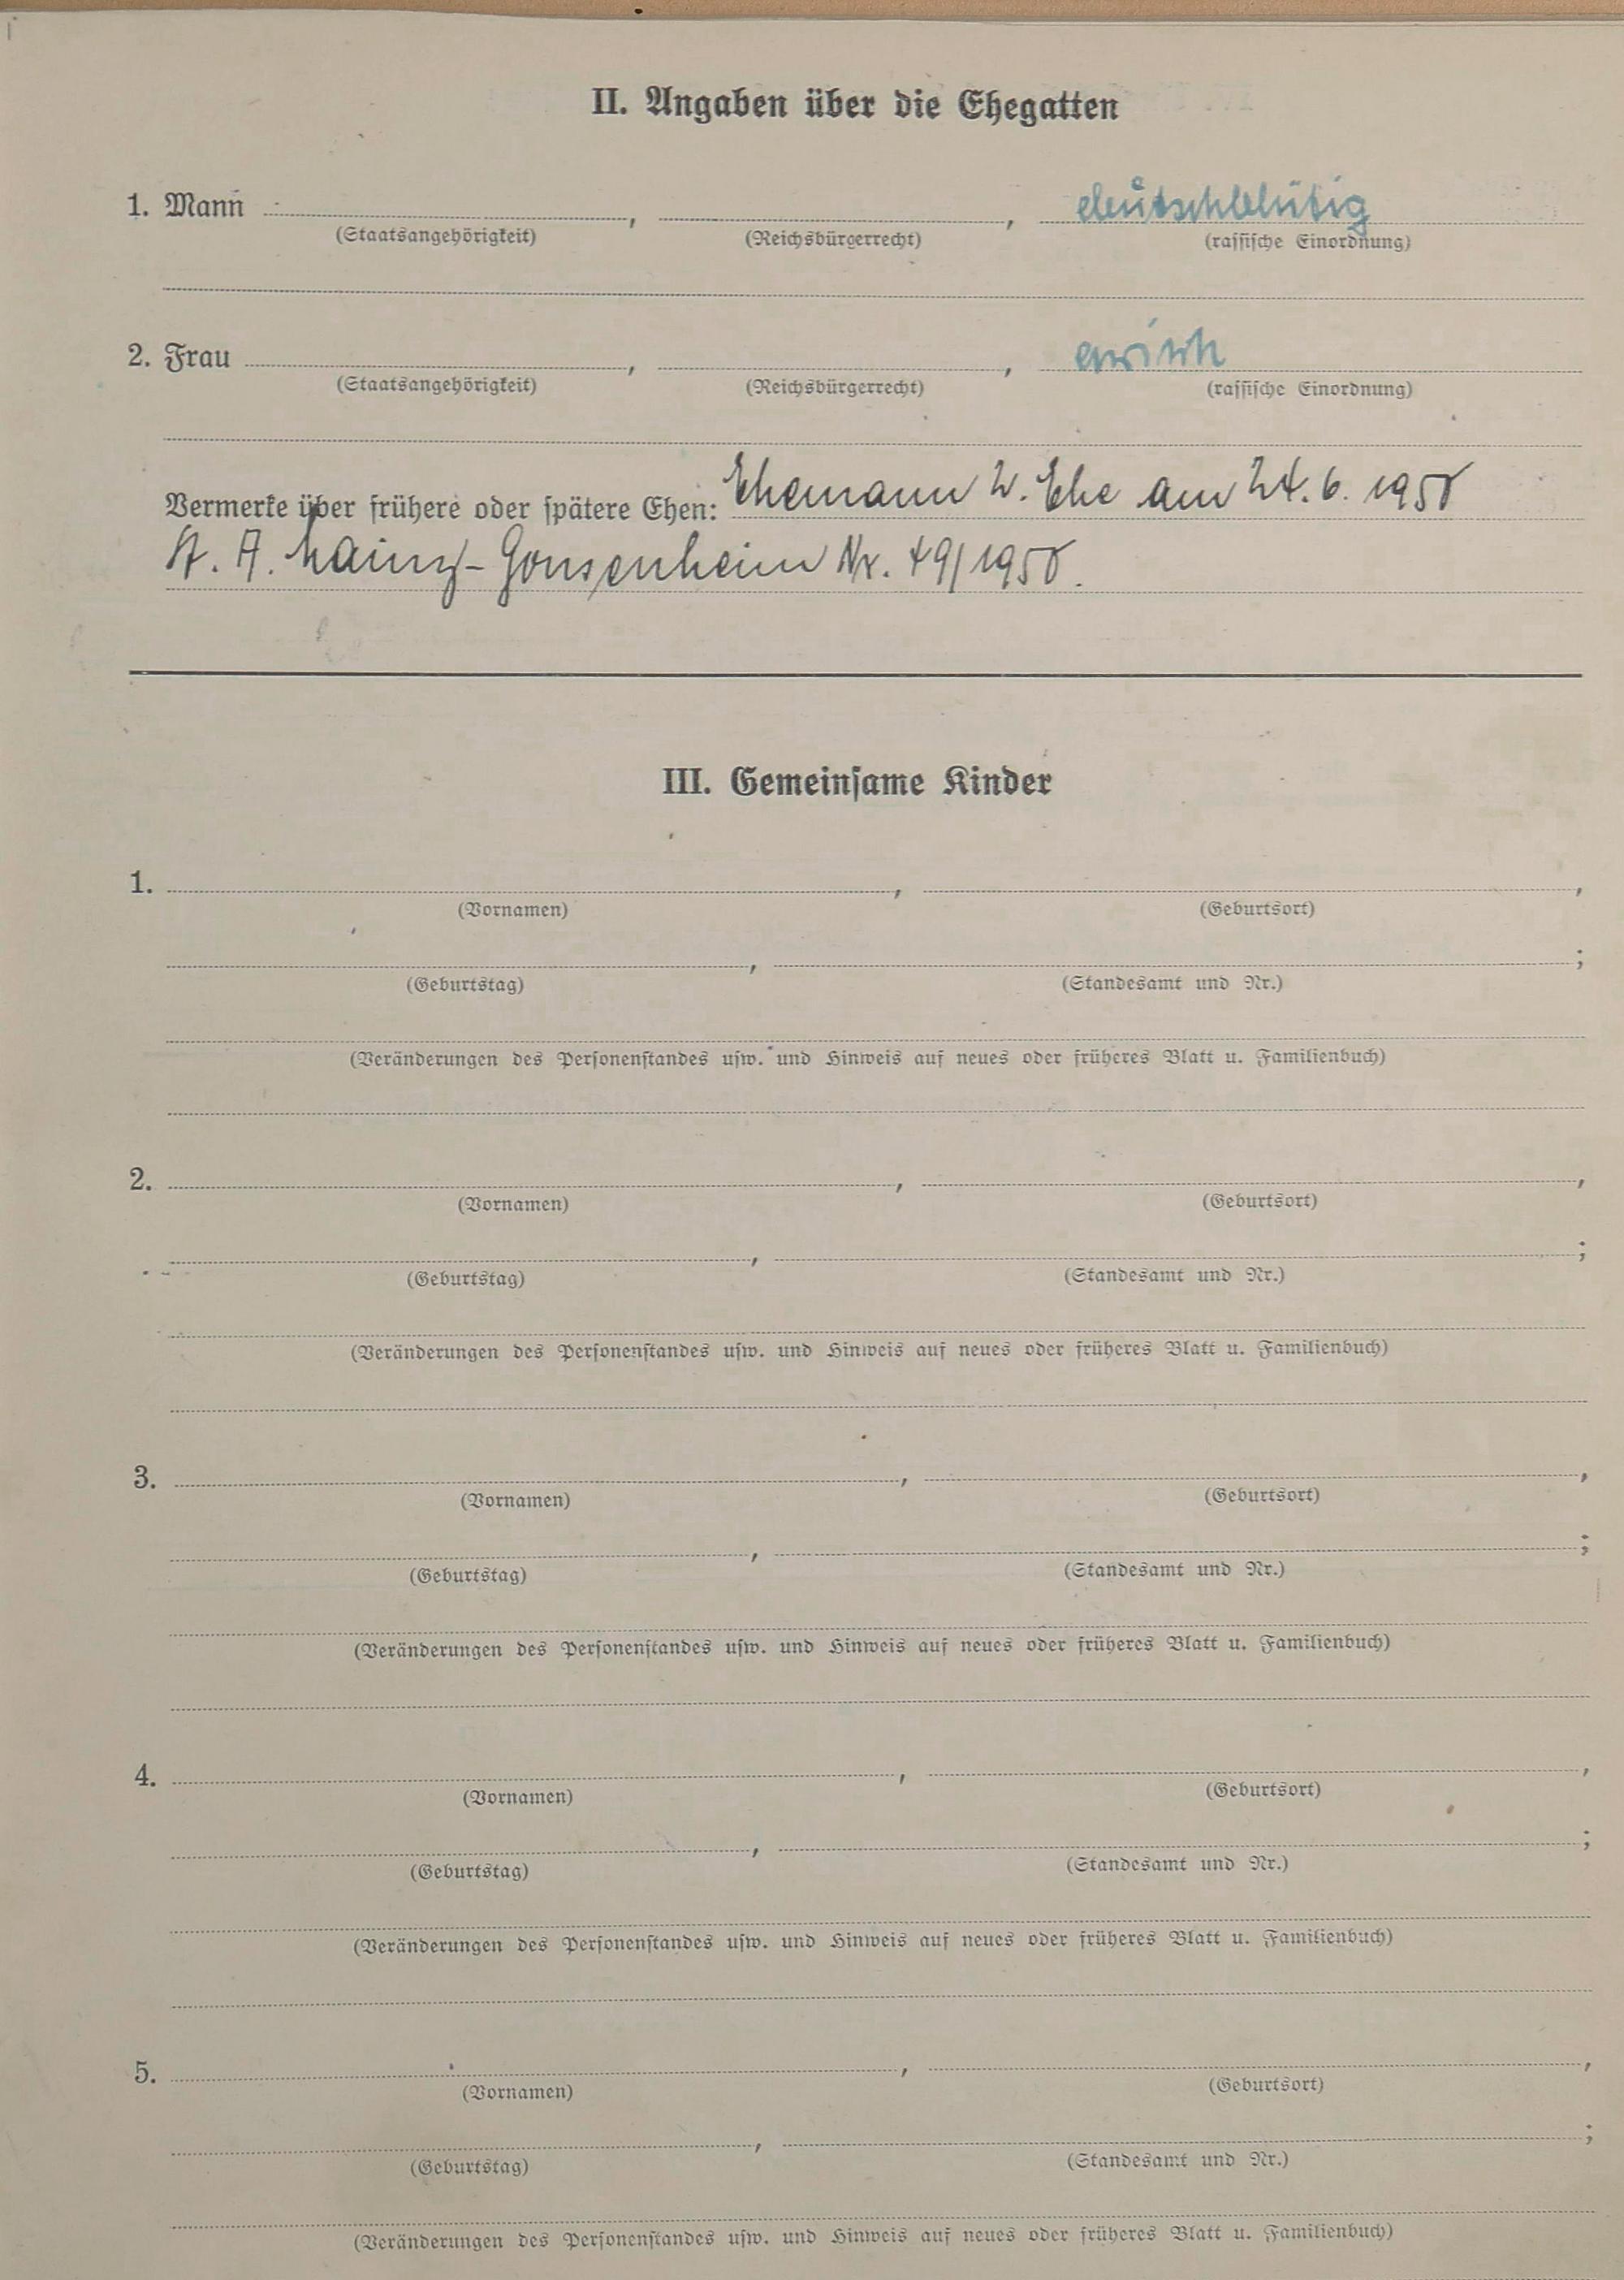 II. Angaben über die Ehegatten
1. Mann , , deutschblütig
(Staatsangehörigkeit) (Reichsbürgerrecht) (rassische Einordnung)
2. Frau , , arisch
(Staatsangehörigkeit) (Reichsbürgerrecht) (rassische Einordnung)
Vermerke über frühere oder spätere Ehen: Ehemann 2. Ehe am 24. 6. 1958
St. A. Mainz-Gonsenheim Nr. 49/1958.
III. Gemeinsame Kinder
1. , ,
(Vornamen) (Geburtsort)
, ;
(Geburtstag) (Standesamt und Nr.)
(Veränderungen des Personenstandes usw. und Hinweis auf neues oder früheres Blatt u. Familienbuch)
2. , ,
(Vornamen) (Geburtsort)
, ;
(Geburtstag) (Standesamt und Nr.)
(Veränderungen des Personenstandes usw. und Hinweis auf neues oder früheres Blatt u. Familienbuch)
3. , ,
(Vornamen) (Geburtsort)
, ;
(Geburtstag) (Standesamt und Nr.)
(Veränderungen des Personenstandes usw. und Hinweis auf neues oder früheres Blatt u. Familienbuch)
4. , ,
(Vornamen) (Geburtsort)
, ;
(Geburtstag) (Standesamt und Nr.)
(Veränderungen des Personenstandes usw. und Hinweis auf neues oder früheres Blatt u. Familienbuch)
5. , ,
(Vornamen) (Geburtsort)
, ;
(Geburtstag) (Standesamt und Nr.)
(Veränderungen des Personenstandes usw. und Hinweis auf neues oder früheres Blatt u. Familienbuch)